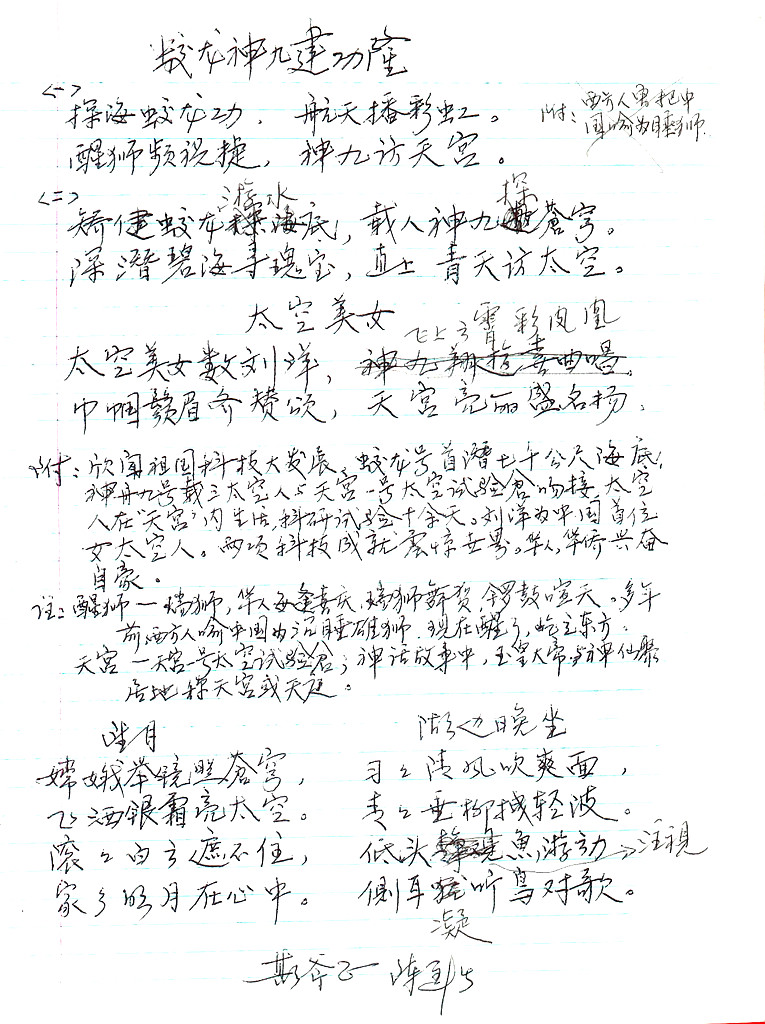 蛟龙神九建功隆
<一>
探海蛟龙功，航天播彩虹。
醒狮频祝捷，神九访天宫。
附：西方人曾把中
国喻为睡狮.
<二>
游水 探
矫健蛟龙探海底，载人神九遨苍穹。
深潜碧海寻瑰宝，直上青天访太空。
太空美女
飞上云霄彩凤凰
太空美女数刘洋，神九翔喜曲唱.
巾帼鬚眉齐赞颂，天宫亮丽盛名扬.
附：欣闻祖国科技大发展，蛟龙号首潜七千公尺海底，
神舟九号载三太空人与天宫一号太空试验舱吻接，太空
人在“天宫”内生活，科研试验十余天。刘洋为中国首位
女太空人。两项科技成就震惊世界。华人，华侨兴奋
自豪。
注：醒狮一瑞狮，华人每逢喜庆，瑞狮舞贺，锣鼓喧天。多年
前西方人喻中国为沉睡雄狮.现在醒了，屹立东方.
天宫一天宫一号太空试验舱；神话故事中，玉皇大帝与神仙聚
居地称天宫或天庭。
望月
嫦娥举镜照苍穹，
飞洒银霜亮太空。
滚々白云遮不住，
家乡明月在心中。
湖边晚坐
习々清风吹爽面，
青々垂柳拭轻波。
低头鱼游动 注视
侧耳听鸟对歌。
凝
斯斧正 陈